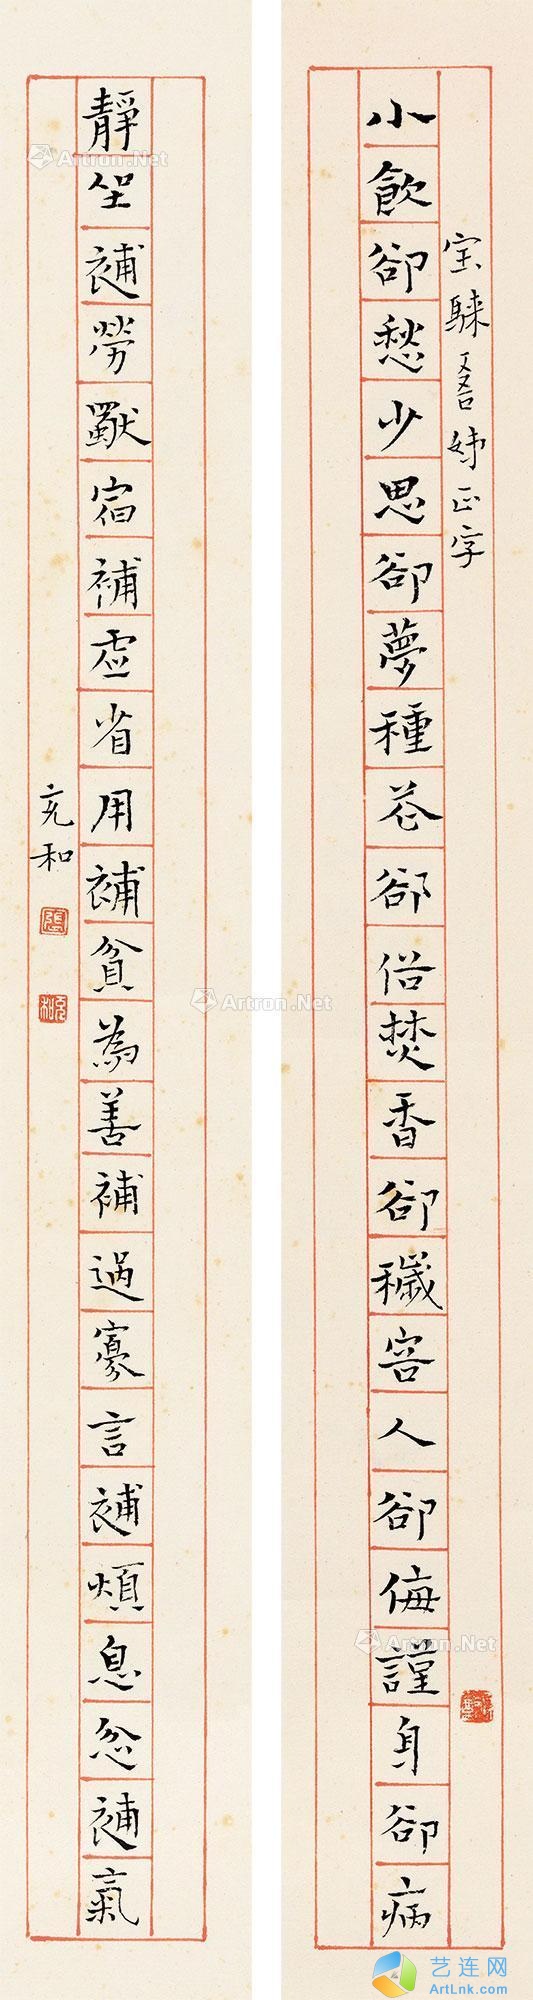 宝騋吾姊正字
小飲卻愁少思卻夢種花卻俗焚香卻穢容人卻侮謹身卻病
靜坐補勞獨宿補虛省用補貧為善補過寡言補煩息忿補氣
充和
張
充和
Artron.Net
Artron.Net
Artron.Net
艺连网
ArtLnk.com